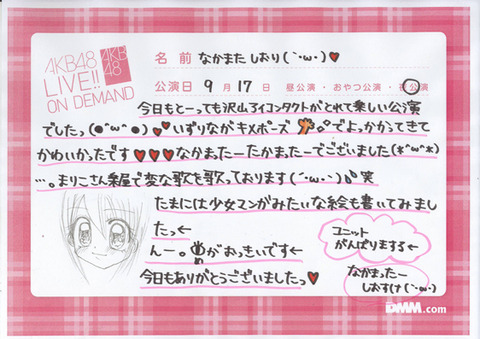 AKB48
LIVE!!
ON DEMAND
AKB
48
名前 なかまた しおり(´･ω･)♥
公演日 9月17日 昼公演・おやつ公演・夜公演
今日もと→っても沢山アイコンタクトがとれて楽しい公演
でしたっ(●^ω^●)♥いずりながキメポーズ でよっかかってきて
かわいかったです♥♥♥なかまったーたかまったーでございました(*^ω^*)
…。まりこさん来屋で変な歌を歌っております(´･ω･)笑
たまには少女マンガみたいな絵も書いてみまし
たっ←
んー。目がおっきいです←
今日もありがとうございましたっ♥
ユニット
がんばりまする←
なかまったー
しおすけ(´･ω･)
DMM.com